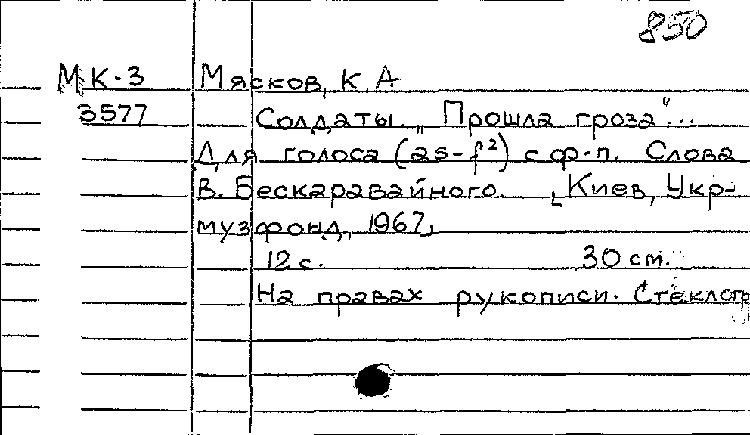 850
МК-3 Мясков, К А
3577 Солдаты. „Прошла гроза"...
Для голоса (as-f²) с ф-п. Слова
В. Бескаравайного. [Киев, Укр-
музфонд, 1967]
12 с. 30 см.
На правах рукописи. Стеклогр